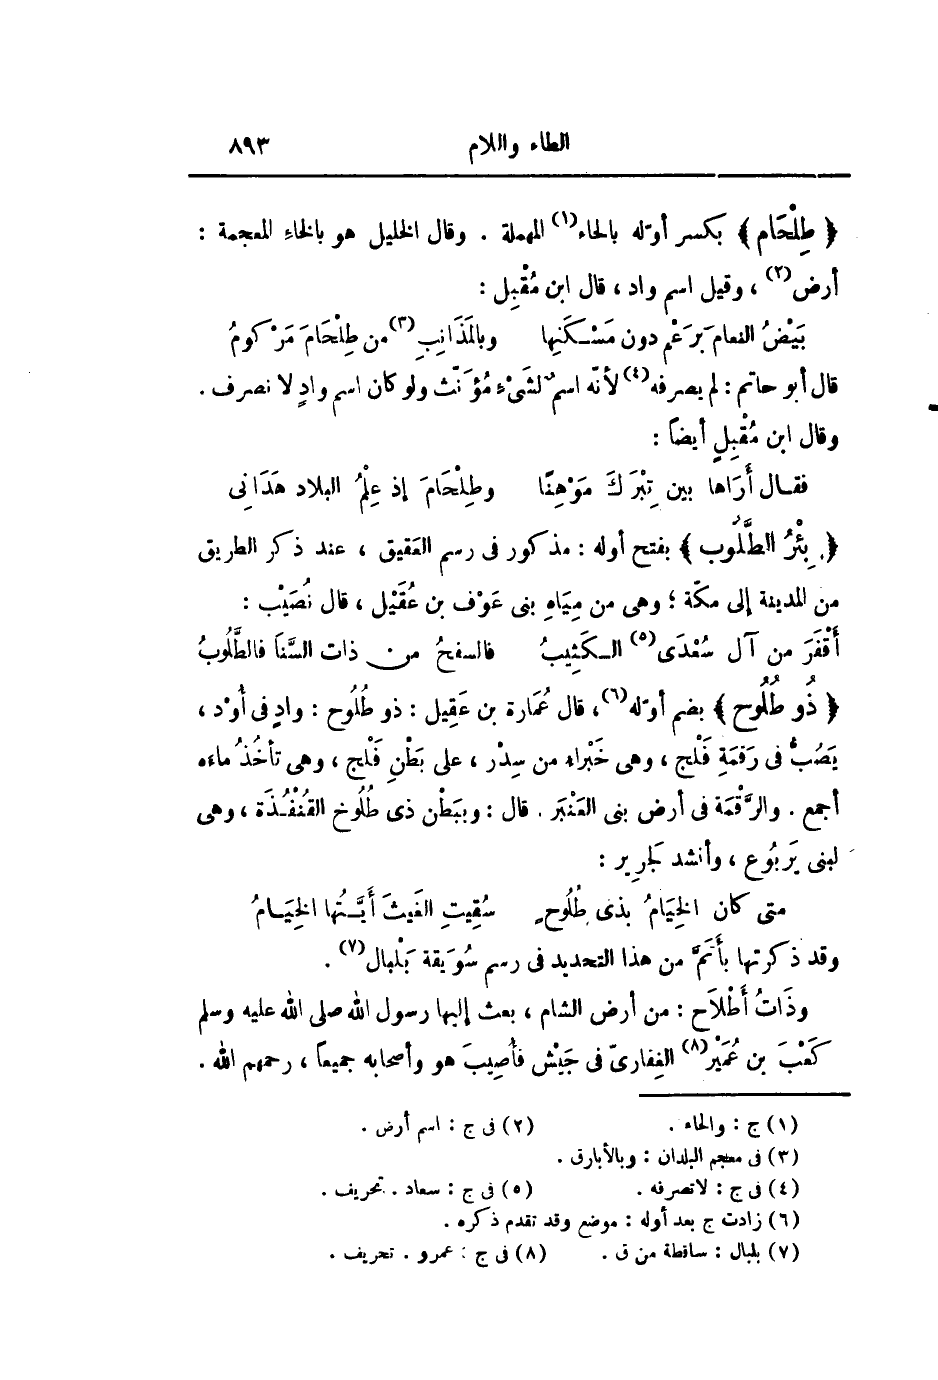 الطاء واللام ٨٩٣
﴿ طِلْحَام ﴾ بكسر أوّله بالحاء(١) المهملة . وقال الخليل هو بالخاءِ المعجمة :
أرض(٢) ، وقيل اسم واد ، قال ابن مُقْبِل :
بَيْضُ النعام بَرَعْمٍ دون مَسْـكَنِها وبالمَذَانِبِ(٣) من طِلْحَامَ مَرْكومُ
قال أبو حاتم : لم يصرفه(٤) لأنّه اسم لشَىْءٍ مُؤَنّث ولو كان اسم وادٍ لا نصرف .
وقال ابن مُقْبِلٍ أيضاً :
فقـال أَرَاها بين تِبْرَكَ مَوْهِنًا وطِلْحَامَ إذ عِلْمُ البلاد هَدَانِى
﴿ بِئْرُ الطَّلُوب ﴾ بفتح أوله : مذكور فى رسم العَقيق ، عند ذكر الطريق
من المدينة إلى مكّة ؛ وهى من مِيَاهِ بنى عَوْف بن عُقَيْل ، قال نُصَيْب :
أَقْفَرَ من آل سُعْدَى(٥) الـكَثِيبُ فالسفحُ من ذات السَّنَا فالطَّلُوبُ
﴿ ذُو طُلُوح ﴾ بضم أوّله(٦) ، قال عُمَارة بن عَقِيل : ذو طُلُوح : وادٍ فى أَوْد ،
يَصُبُّ فى رَقمَةِ فَلْج ، وهى خَبْراء من سِدْر ، على بَطْنِ فَلْج ، وهى تأخُذُ ماءه
أجمع . والرَّقْمَة فى أرض بنى العَنْبَر . قال : وببَطْن ذى طُلُوخ القُنْفُـذَة ، وهى
لبنى يَرْبُوع ، وأنشد لجرِير :
متى كان الخِيَامُ بذى طُلُوحٍ سُقِيتِ الغَيثَ أَيَّـتُها الخِيَـامُ
وقد ذكرتها بأَتَمَّ من هذا التحديد فى رسم سُوَيقة بَلْبال(٧) .
وذَاتُ أَطْلاَح : من أرض الشام ، بعث إليها رسول الله صلى الله عليه وسلم
كَعْبَ بن عُمَيْر(٨) الغِفارىّ فى جَيْش فأُصِيبَ هو وأصحابه جميعاً ، رحمهم الله .
(١) ج : والحاء . (٢) فى ج : اسم أرض .
(٣) فى معجم البلدان : وبالأبارق .
(٤) فى ج : لاتصرفه . (٥) فى ج : سعاد . تحريف .
(٦) زادت ج بعد أوله : موضع وقد تقدم ذكره .
(٧) بلبال : ساقطة من ق . (٨) فى ج : عمرو . تحريف .